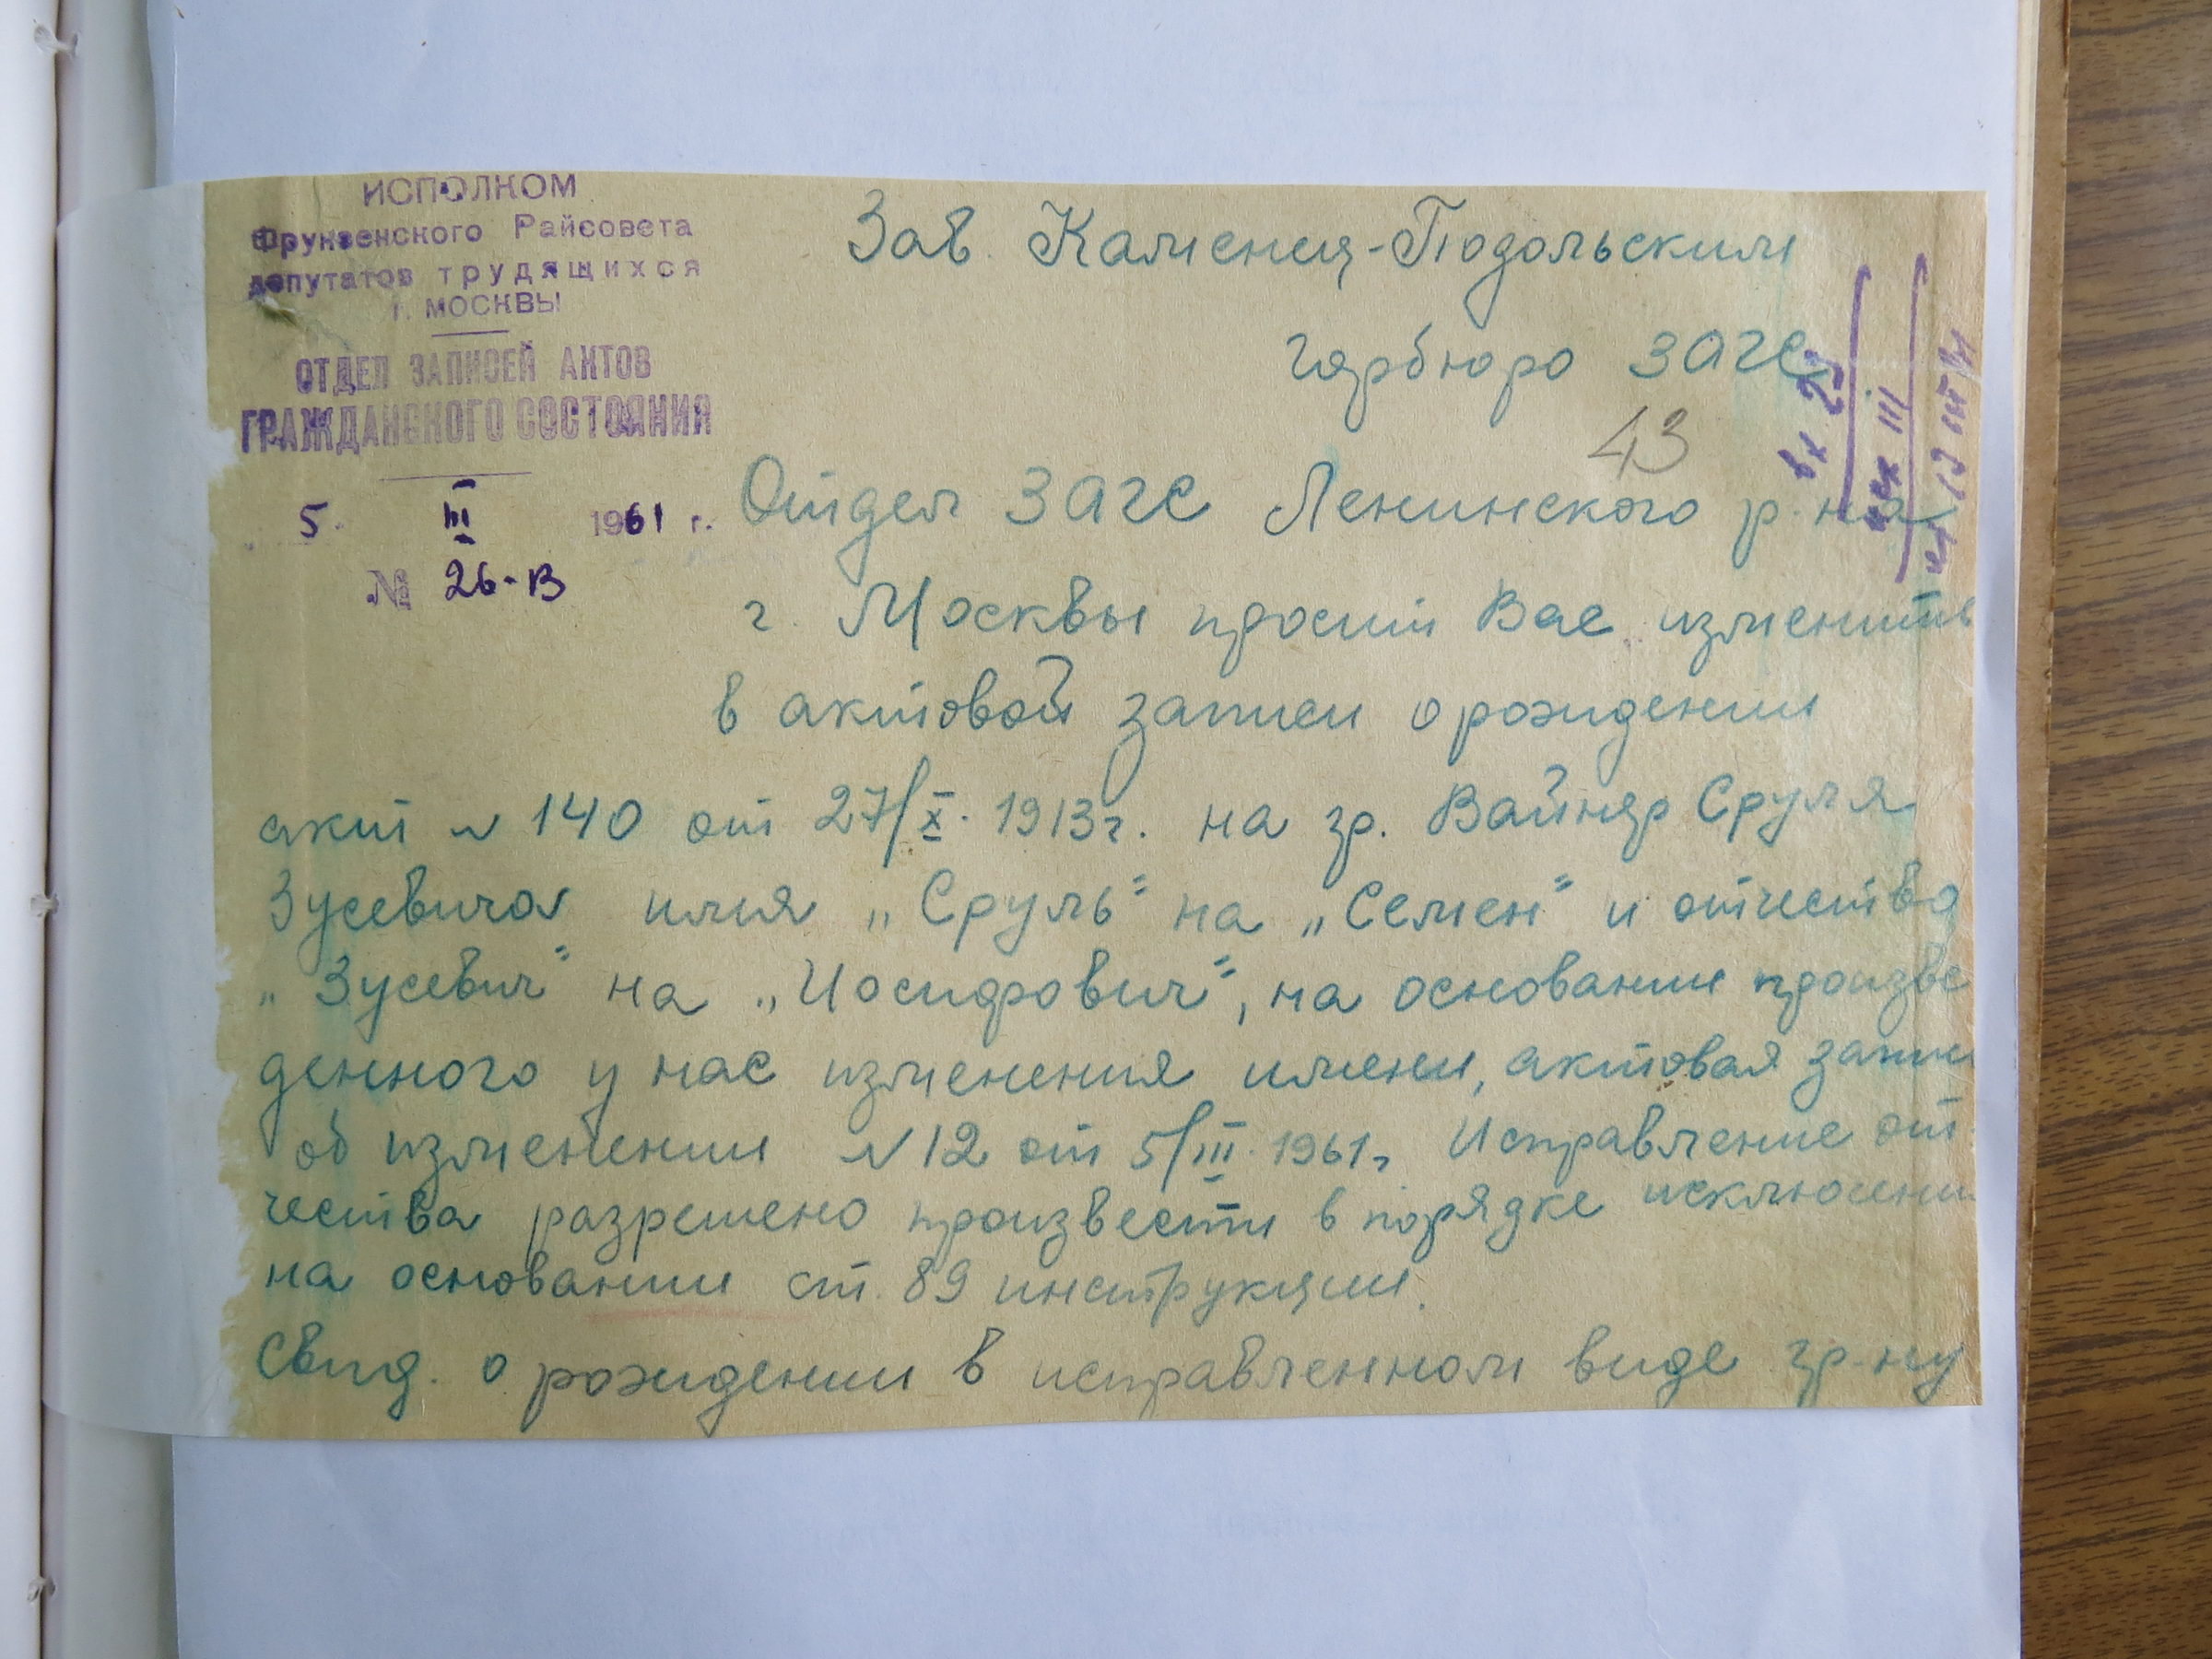 ИСПОЛКОМ
Фрунзенского Райсовета
депутатов трудящихся
г. МОСКВЫ
ОТДЕЛ ЗАПИСЕЙ АКТОВ
ГРАЖДАНСКОГО СОСТОЯНИЯ
5 III 1961 г.
№ 26-В
Зав. Каменец-Подольским
горбюро ЗАГС
43
Отдел ЗАГС Ленинского р-на
г. Москвы просит Вас изменить
в актовой записи о рождении
акт N 140 от 27/X. 1913г. на гр. Вайнер Сруля
Зусевича имя „Сруль" на „Семен" и отчество
„Зусевич" на „Иосифович", на основании произве
денного у нас изменения имени, актовая запис
об изменении N 12 от 5/III. 1961г. Исправление от
чества разрешено произвести в порядке исключени
на основании ст. 89 инструкции.
Свид. о рождении в исправленном виде гр-ну